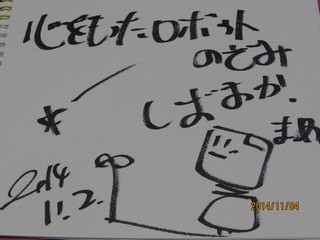 心をもったロボット
のぞみ
しばおか.
まめ
2014
11.2.
2014/11/04